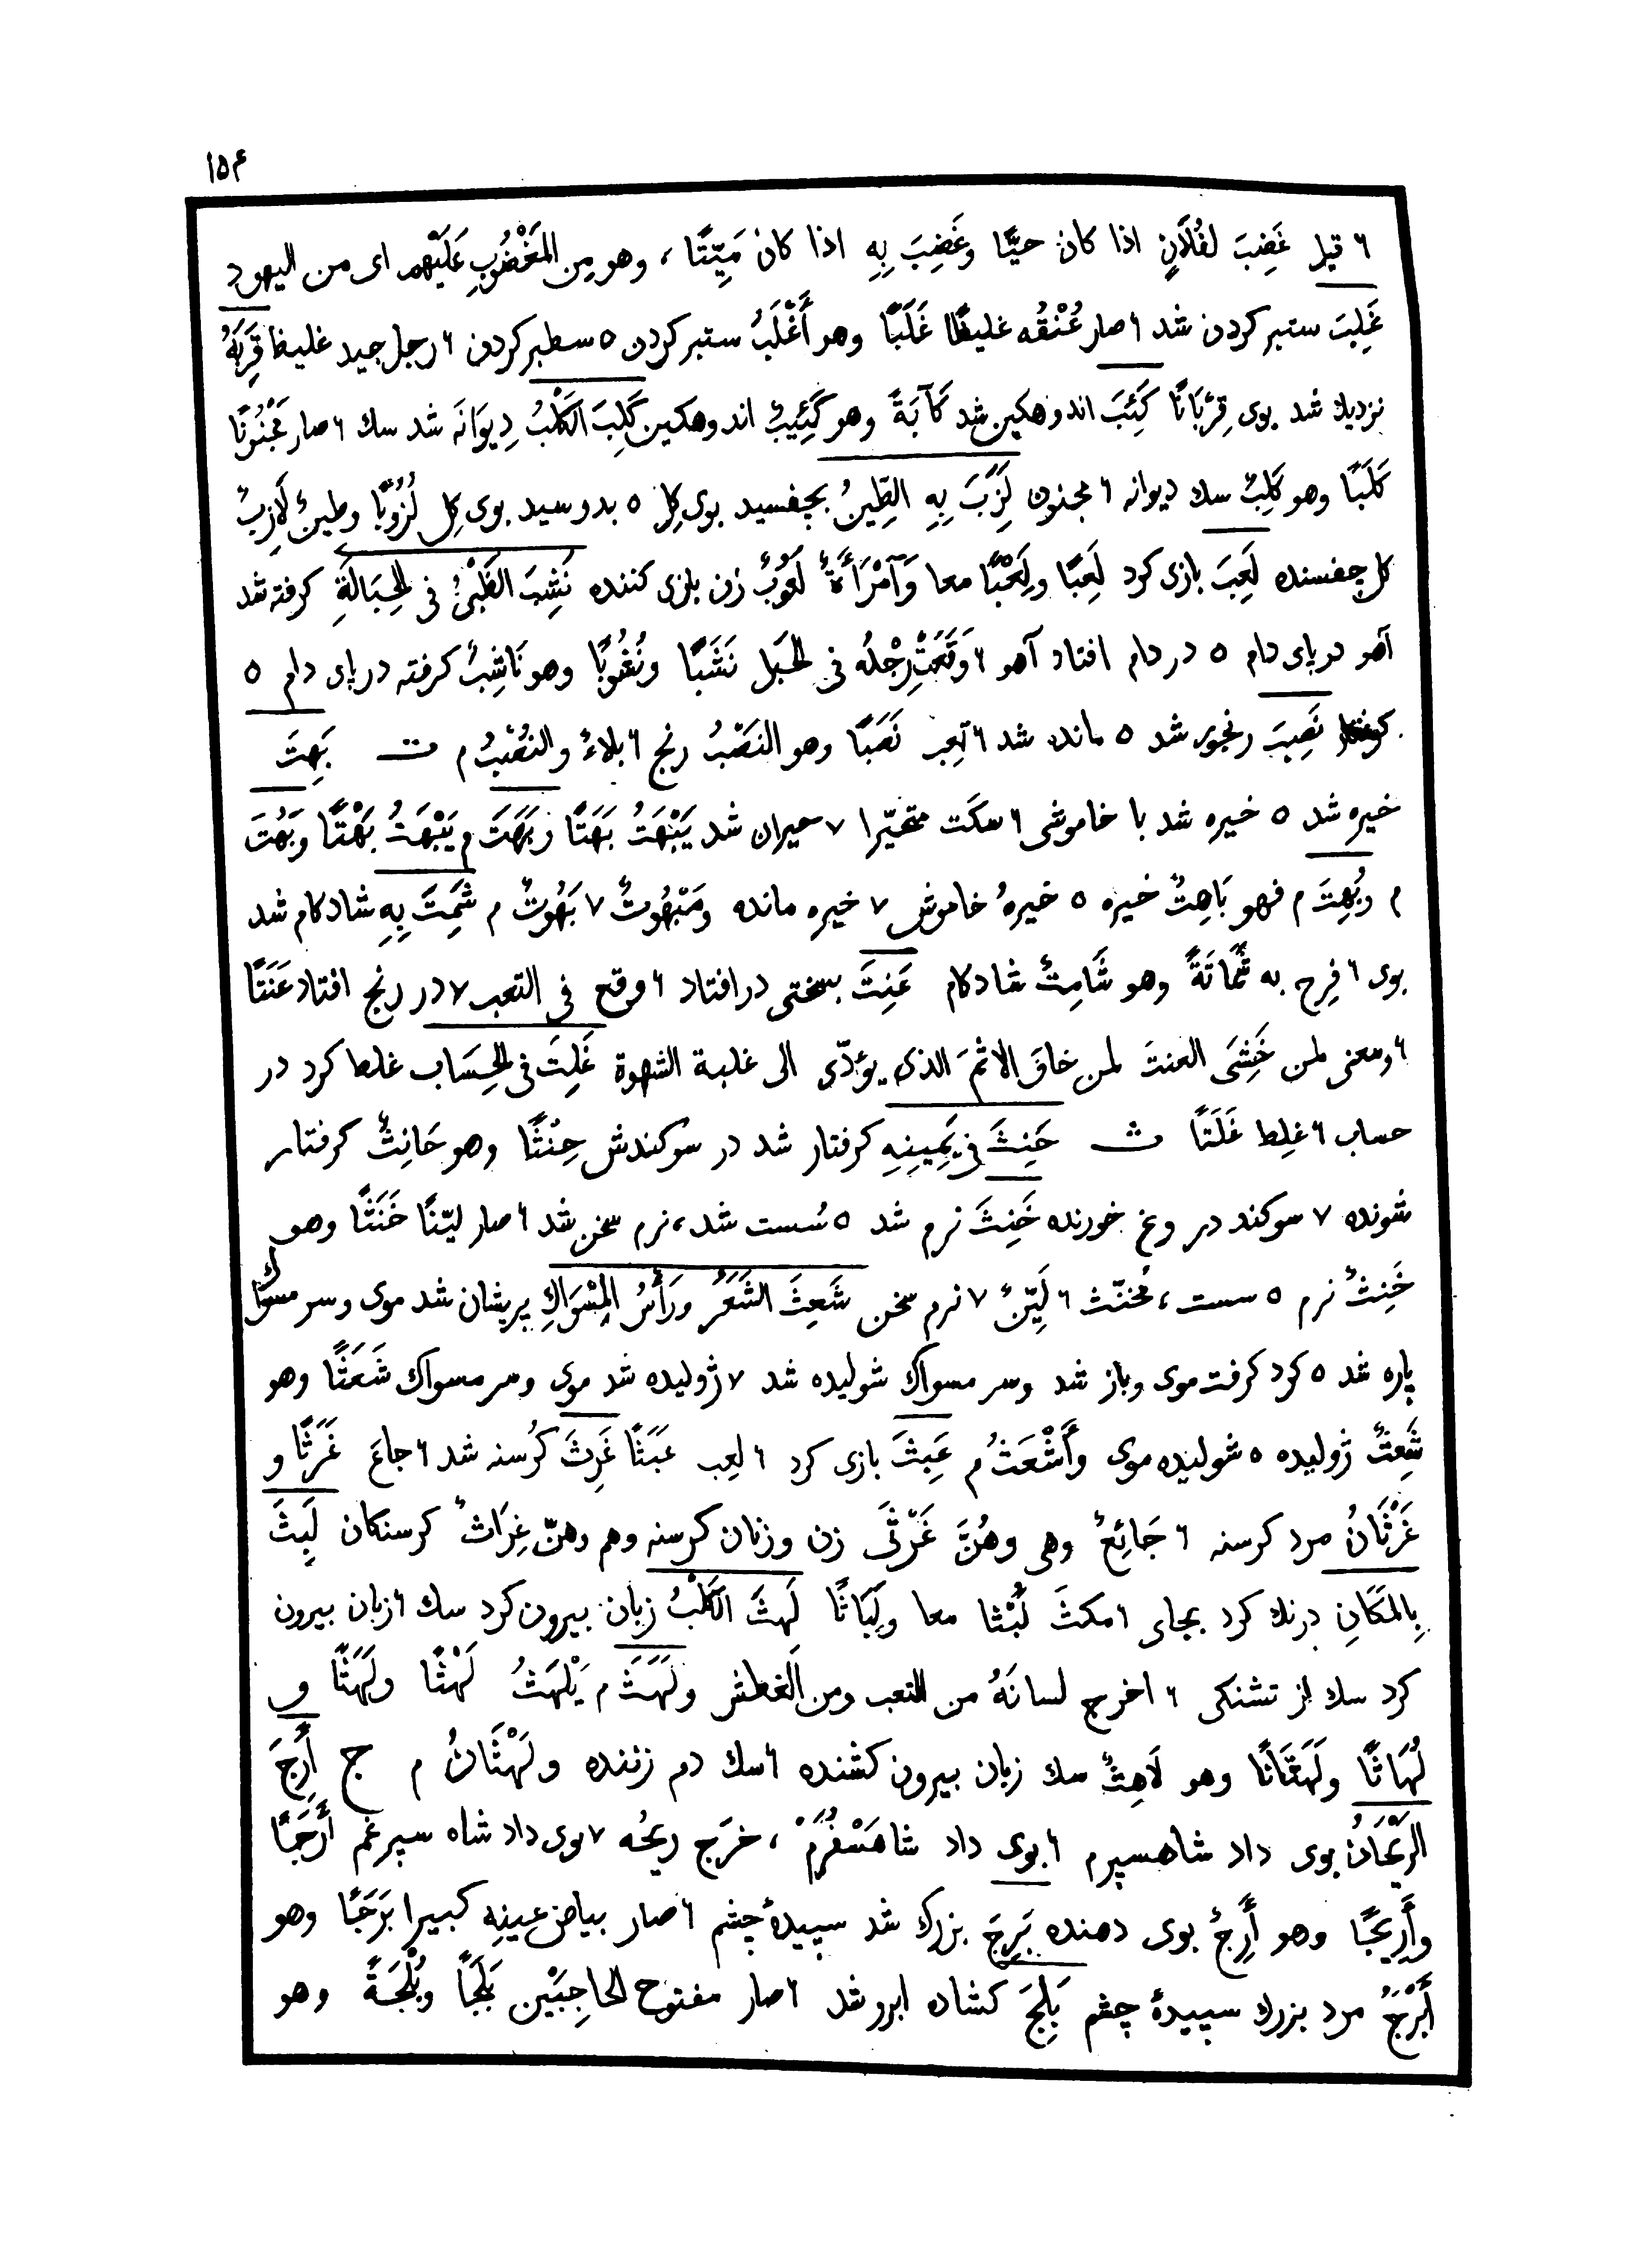 ۱۵۴
۶ قیل غَضِبَ لفُلَانٍ اذا کان حیًّا وغَضِبَ بِهِ اذا کان مَیِّتًا ، وهو مِن المَغْضُوبِ عَلَیْهِم ای من الیهود
غَلِبَ ستبر کردن شد ۶ صار عُنْقُه غلیظًا غَلَبًا وهو أَغْلَبُ ستبر کردن ۵ سطبر کردن ۶ رجل جید غلیظا قَرِبَهُ
نزدیك شد بوی قِرْبَانًا کَئِبَ اندوهکین شد کَآبَةً وهو کَئِیبٌ اندوهکین کَلِبَ الکَلْبُ دِیوَانَه شد سك ۶ صار مَجْنُونًا
کَلَبًا وهو کَلِبٌ سك دیوانه ۶ مجنون لَزِبَ بِهِ الطِّینُ بچفسید بوی کِل ۵ بدوسید بوی کِل لُزُوبًا وطینٌ لَازِبٌ
کل چفسنده لَعِبَ بازی کرد لَعِبًا ولِعْبًا معا وَآمْرَأَةٌ لَعُوبٌ زن بازی کننده نَشِبَ الظَّبْیُ فی الحِبَالَةِ کرفته شد
آهو در پای دام ۵ در دام افتاد آهو ۶ وَقَعَتْ رِجْلُه فی الحَبل نَشَبًا ونُشُوبًا وهو نَاشِبٌ کرفته در پای دام ۵
کرفتار نَصِبَ رنجور شد ۵ مانده شد ۶ تَعِب نَصَبًا وهو النَصْبُ رنج ۶ بلاءٌ والنُصْبُ م ت بَهِتَ
خیره شد ۵ خیره شد با خاموشی ۶ سکَت متحیّرا ۷ حیران شد یَبْهَتُ بَهَتًا وبَهَتَ م یَبْهَتُ بَهْتًا وبَهُتَ
م وبُهِتَ م فهو بَاهِتٌ خیره ۵ خیرهٔ خاموش ۷ خیره مانده ومَبْهُوتٌ ۷ بَهُوتٌ م شَمِتَ بِهِ شادکام شد
بوی ۶ فِرح به شَمَاتَةً وهو شَامِتٌ شادکام عَنِتَ بسختی درافتاد ۶ وقع فی التعب ۷ در رنج افتاد عَنَتًا
۶ ومعنی لمن خَشِیَ العنتَ لمن خافَ الاثمَ الذی یؤدّی الی غلبة الشهوة غَلِتَ فی الحِسَاب غلط کرد در
حساب ۶ غلِط غَلَتًا ث حَنِثَ فی یَمِینِهِ کرفتار شد در سوکندش حِنْثًا وهو حَانِثٌ کرفتار
شونده ۷ سوکند دروغ خورنده خَنِثَ نرم شد ۵ سُست شد، نرم سخن شد ۶ صار لیّنًا خَنَثًا وهو
خَنِثٌ نرم ۵ سست ، مُخنّث ۶ لَیِّنٌ ۷ نرم سخن شَعِثَ الشَعَرُ ورَأسُ المِسْوَاكِ پریشان شد موی وسر مسواك
پاره شد ۵ کرد کرفت موی وباز شد وسر مسواك شولیده شد ۷ ژولیده شد موی وسر مسواك شَعَثًا وهو
شَعِثٌ ژولیده ۵ شولیده موی وأَشْعَثُ م عَبِثَ بازی کرد ۶ لعِب عَبَثًا غَرِثَ کُرسنه شد ۶ جاعَ غَرَثًا و
غَرْثَانُ مرد کرسنه ۶ جَائِعٌ وهی وهُنَّ غَرْثَی زن وزنان کرسنه وهم وهنّ غِرَاثٌ کرسنکان لَبِثَ
بِالمَکَانِ درنك کرد بجای ۶ مکثَ لُبْثا معا ولَبَاثًا لَهِثَ الکَلْبُ زبان بیرون کرد سك ۶ زبان بیرون
کرد سك از تشنکی ۶ اخرج لسانَهُ من التعب ومن العَطش ولَهَثَ م یَلْهَثُ لَهْثًا ولَهَثًا و
لُهَاثًا ولَهَثَانًا وهو لَاهِثٌ سك زبان بیرون کشنده ۶ سك دم زننده ولَهْثَانُ م ج أَرِجَ
الرَیْحَانُ بوی داد شاهسپرم ۶ بوی داد شاهَسْفَرَمْ ، خرَج ریحُه ۷ بوی داد شاه سپرغم أَرَجًا
وأَرِیجًا وهو أَرِجٌ بوی دهنده بَرِجَ بزرك شد سپیدهٔ چشم ۶ صار بیاض عینِه کبیرا بَرَجًا وهو
أَبْرَجُ مرد بزرك سپیدهٔ چشم بَلِجَ کشاده ابرو شد ۶ صار مفتوح الحاجِبَیْن بَلَجًا وبُلْجَةً وهو